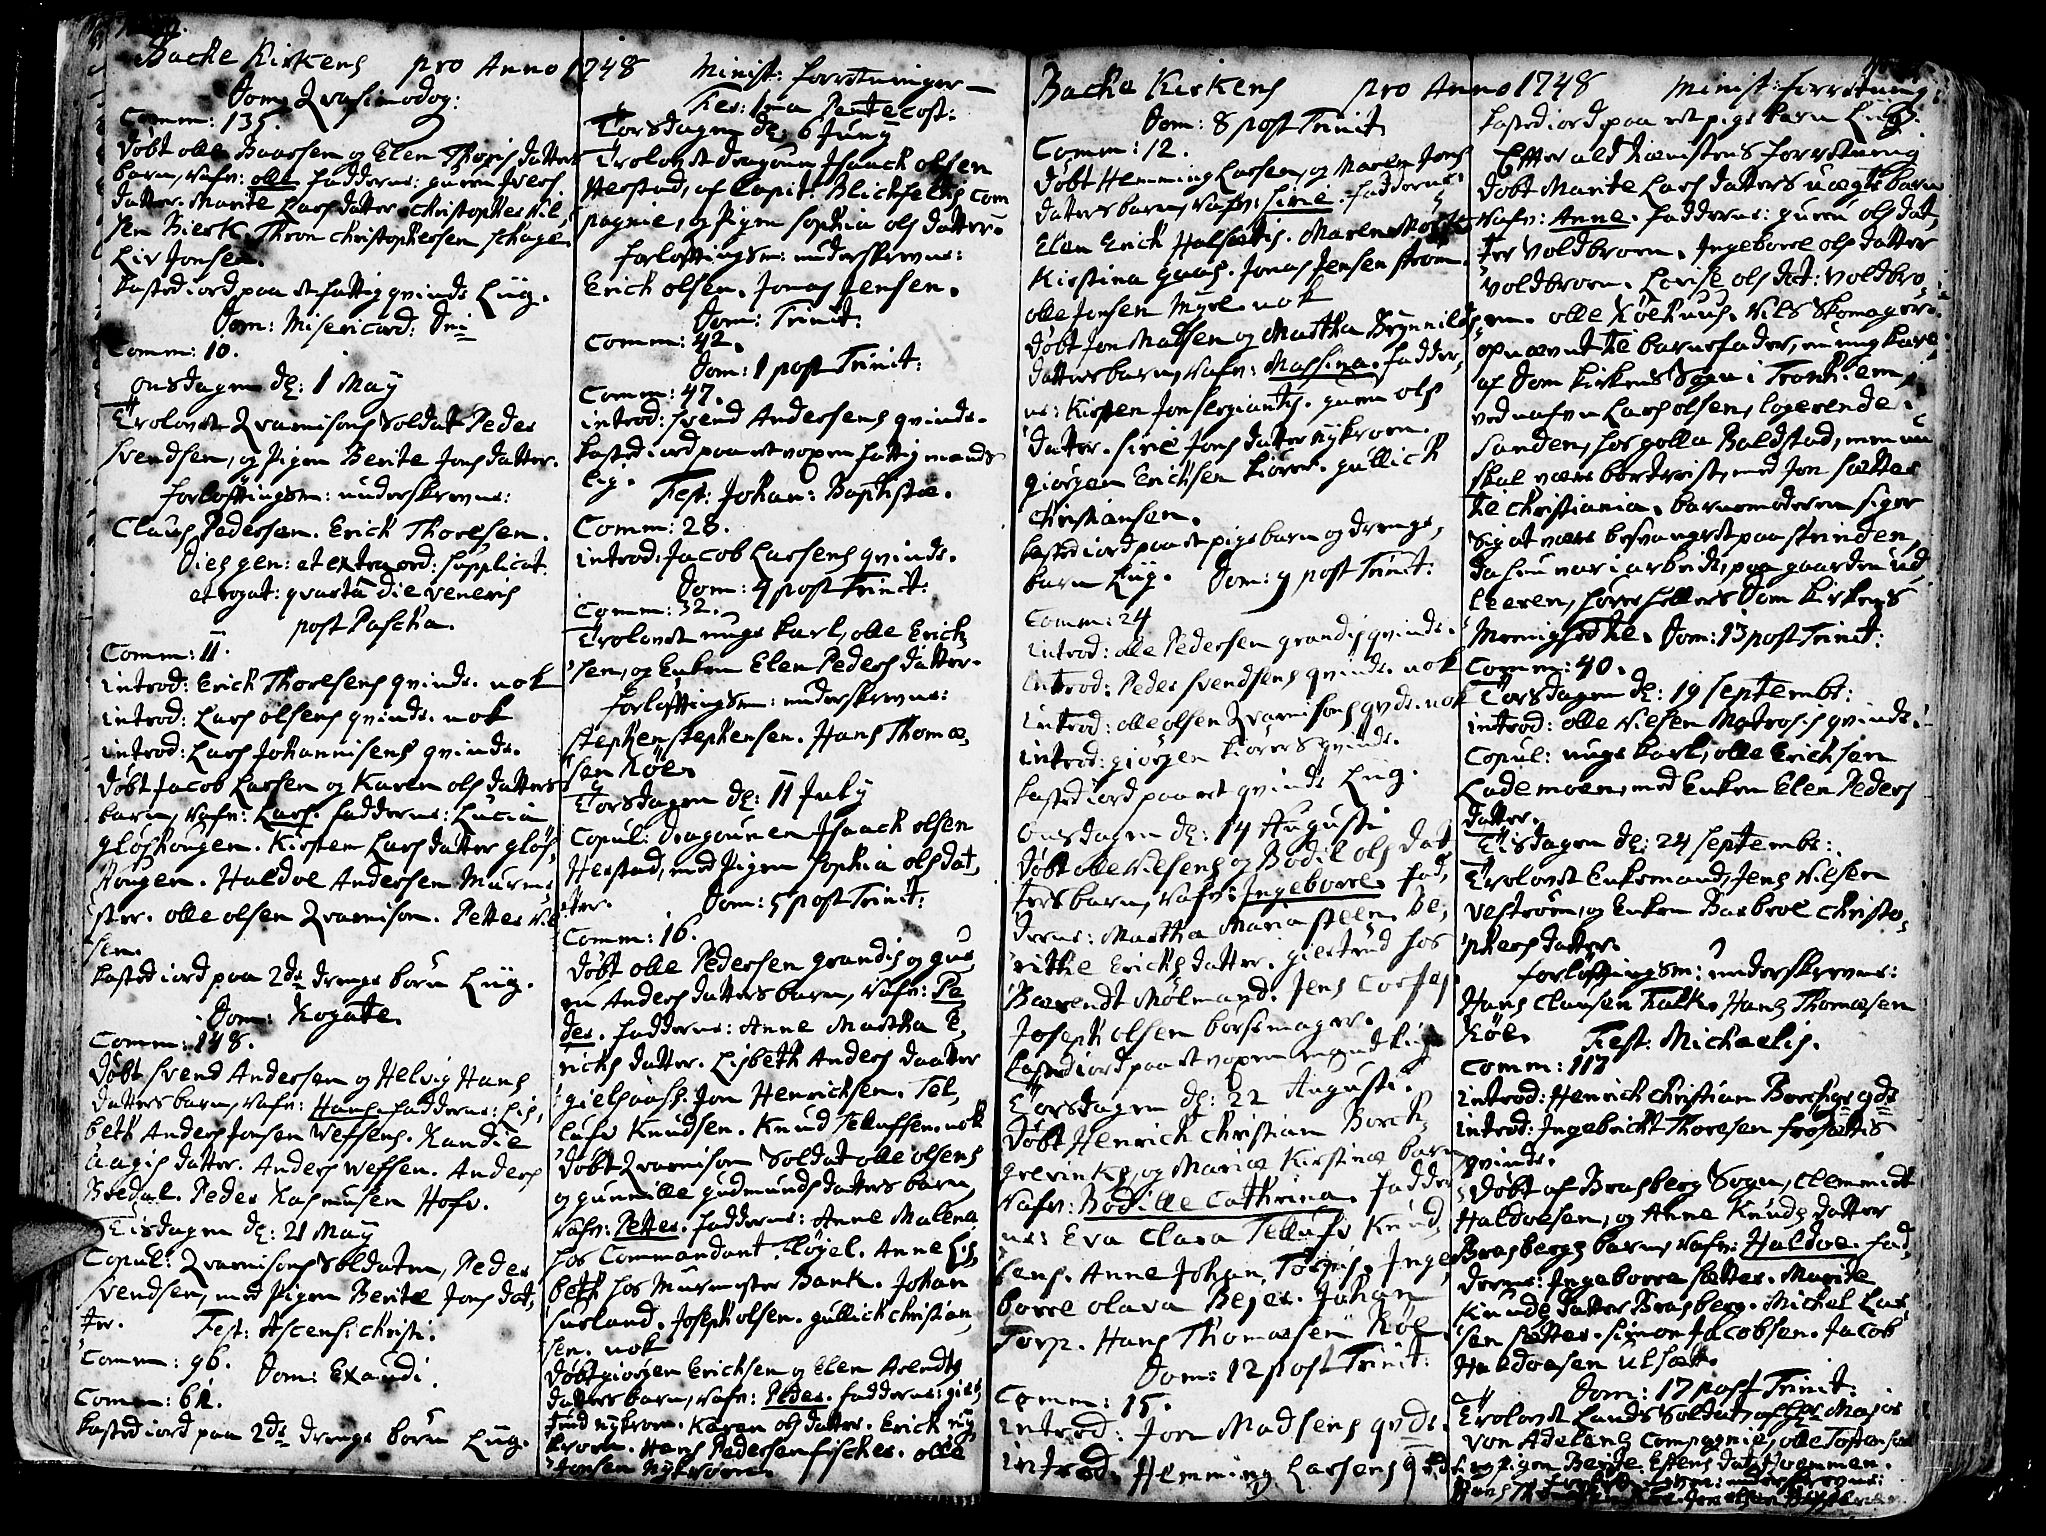 Backe Kirkens pro Anno 1748 Minist: forretninger
Dom: Qvasimodog:
Comm: 135.
Døbt olle Baarsen og Elen Thoris datters
barn, nafn: olle. fadderne: guren Ivers
datter. Marite Lars datter. Christopher Nil,
sen Bierk. Thron Christophersen schage.
Liv Jonsen.
kasted iord paa et fattig qvinds Liig.
Dom: Misericord: Dni
Comm: 10.
onsdagen d: 1 May
Trolovet Qvarnisons Soldat Peder
Svendsen, og Pigen Berite Jons datter.
forloftningsm: underskrevne:
Claus Pedersen. Erick Thoresen.
Dies gen: et extraord: supplicat:
et rogat: qvarta die veneris
post Pascha.
Comm: 11.
introd: Erick Thoresens qvinde. nok
introd: Lars olsens qvinde. nok
introd: Lars Johannisens qvinde.
døbt Jacob Larsen og Karen ols datters
barn, nafn: Lars. fadderne: Lucia
gløshougen. Kirsten Lars datter gløs,
hougen. Haldor Andersen Murme
ster. olle olsen Qvarnison. Petter Nil
sen.
kasted iord paa 2de drenge børn Liig.
Dom: Rogate.
Comm: 148.
Døbt Svend Andersen og Helvig Hans
datters barn, nafn: Hans. fadderne: Lis,
beth Anders Jonsen Wefsens. Randie
Aagis datter. Anders Wefsen. Anders
Bredal. Peder Rasmusen Hofv.
Tisdagen d: 21 May
Copul: Qvarnisons Soldaten, Peder
Svendsen, med Pigen Berite Jons dat,
ter. Fest: Ascens: Christi.
Comm: 96. Dom: Exaudi.
Comm: 61.
kasted iord paa 2de drenge børn Liig.
Fer: 1ma Pentecost:
Torsdagen d: 6 Juny
Trolovet dragoun Isaach olsen
Herstad, af Capit: Blichfelds com
pagnie, og Pigen Sophia ols datter.
forloftningsm: underskrevne:
Erich olsen. Jonas Jensen.
Dom: Trinit:
Comm: 42.
Dom: 1 post Trinit:
Comm: 47.
introd: Svend Andersens qvinde.
kasted iord paa et voxen fattig mands
liig.
Fest: Johan: Baptistæ.
Comm: 28.
introd: Jacob Larsens qvinde.
Dom: 4 post Trinit:
Comm: 32.
Trolovet unge karl, olle Erich
sen, og Enken Elen Peders datter.
forloftningsm: underskrevne:
Stephen Stephensen. Hans Thomæ,
sen Röe.
Torsdagen d: 11 July
Copul: dragounen Isaach olsen
Herstad, med Pigen Sophia ols dat,
ter. Dom: 5 post Trinit:
Comm: 16.
Døbt olle Pedersen grandis og gu
ru Anders datters barn, nafn: Pe
der. fadderne: Anne Martha E,
richs datter. Lisbeth Anders daatter
gielhaass. Jon Henrichsen. Tel,
lufv Knudsen. Knud Telufsen. nok
døbt Qvarnison Soldat olle olsens
og gunnille gudmunds datters barn,
nafn: Petter. fadderne: Anne Malena
hos Commandant Fløjel. Anne Lis
beth hos Murmester Bank. Johan
Surland. Joseph olsen. gullick Christian,
sen. nok
Døbt giørgen Erichsen og Elen Arendts
datters barn, nafn: Peder. fadderne: gier
trud nykroen. Karen ols datter. Erich ny
kroen. Hans Pedersen fischer. olle
Jonsen nykroen.
Backe Kirkens pro Anno 1748 Minist: forretning:
Dom: 8 post Trinit:
Comm: 12.
døbt Hemming Larsen, og Maren Jons
datters barn, nafn: Sirie. fadderne:
Elen Erich Halsetis. Maren
Kirstina gaas. Jonas Jensen strøm.
olle Jonsen Myre. nok
døbt Jon Madsen og Martha Brynnilds
datters barn, nafn: Massina. fadder,
ne: Kirsten Jon sergiantz. guren ols
datter. Sirie Jons datter nykroen.
giørgen Erichsen kiører. gullich
Christiansen.
kasted iord paa et pige barn og drenge,
barn Liig. Dom: 9 post Trinit:
Comm: 24
introd: olle Pedersen grandis qvinde.
introd: Peder Svendsens qvinde. nok
introd: olle olsen Qvarnisons qvds. nok
introd: giørgen kiørers qvinde.
kasted iord paa et qvinds Liig.
Onsdagen d: 14 Augusti
døbt olle Nilsens og Bodil ols dat
ters barn, nafn: Ingeborre. fad,
derne: Martha Maria steen. Be,
rithe Erichs datter. giertrud hos
Barendt Mølmand. Jens
Joseph olsen børsemager.
kasted iord paa et voxen mands liig
Torsdagen d: 22 Augusti.
døbt Henrich Christian Borch,
grevinks, og Mariæ Kirstinæ barn
nafn: Bodille Cathrina. fadder
ne: Eva Clara Tellufv Knud,
sens. Anne Johan Torpis. Inge,
borre olava Bejer. Johan
Torp. Hans Thomæsen Röe.
Dom: 12 post Trinit:
Comm: 15.
introd: Jon Madsens qvds.
introd: Hemming Larsens qvds.
kasted iord paa et pige barn Liig.
Effter ald tienistens forretning
døbt Marite Lars datters uægte barn
nafn: Anne. fadderne: guru ols dat,
ter voldbroen. Ingeborre ols datter
voldbroen. Lovise ols dat: voldbro,
en. olle Kölhuus. Nils Skomager.
opnævnt til barnefader, en ung karl
af Dom kirkens Sogn i Trontheim,
ved nafvn Lars olsen, logerende i
Sanden, hos golla Baldstad, men nu
skal være bortreist, med Jon Sætter
til Christiania. barnemoderen siger
sig at være besvangret paa strinden,
da hun var i arbeide paa gaarden ud,
leeren, hører hellers Dom kirkens
Menighed til. Dom: 13 post Trinit:
Comm: 40.
Torsdagen d: 19 Septembr:
introd: olle Nilsen Matrosis qvinde.
Copul: unge karl, olle Erichsen
Lademoen, med Enken Elen Peders
datter.
Tisdagen d: 24 Septembr:
Trolovet Enkemand, Jens Nilsen
Vestrøm, og Enken Barbroe Christo,
phers datter.
forloftningsm: underskrevne:
Hans Clausen Falk. Hans Thomæsen
Röe. Fest: Michaelis.
Comm: 117
introd: Henrich Christian Borchgr: qds
introd: Ingebricht Thoresen frosettis
qvinde.
døbt af Brasberg Sogn, Clemmidt
Haldorsen, og Anne Knuds datter
Brasbergs barn, nafn: Haldor. fad,
derne: Ingeborre sætter. Marite
Knuds datter Brasberg. Michel Lar
sen sætter. Simon Jacobsen. Jacob
Haldorsen Ulsæt.
Dom: 17 post Trinit:
Trolovet Lands Soldat af Hr Major
von Adelens Compagnie, olle Tostensen
og Pigen Berite Estens dat:
underskrevne: